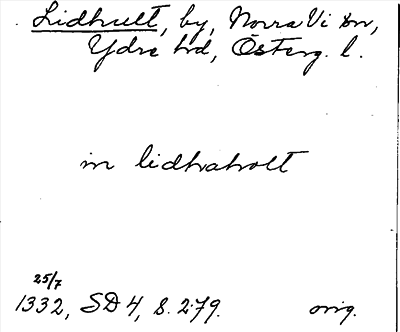 Lidhult, by, Norra Vi sn,
Ydre hd, Österg. l.
in lidhaholt
25/7
1332, SD 4, S. 279. orig.